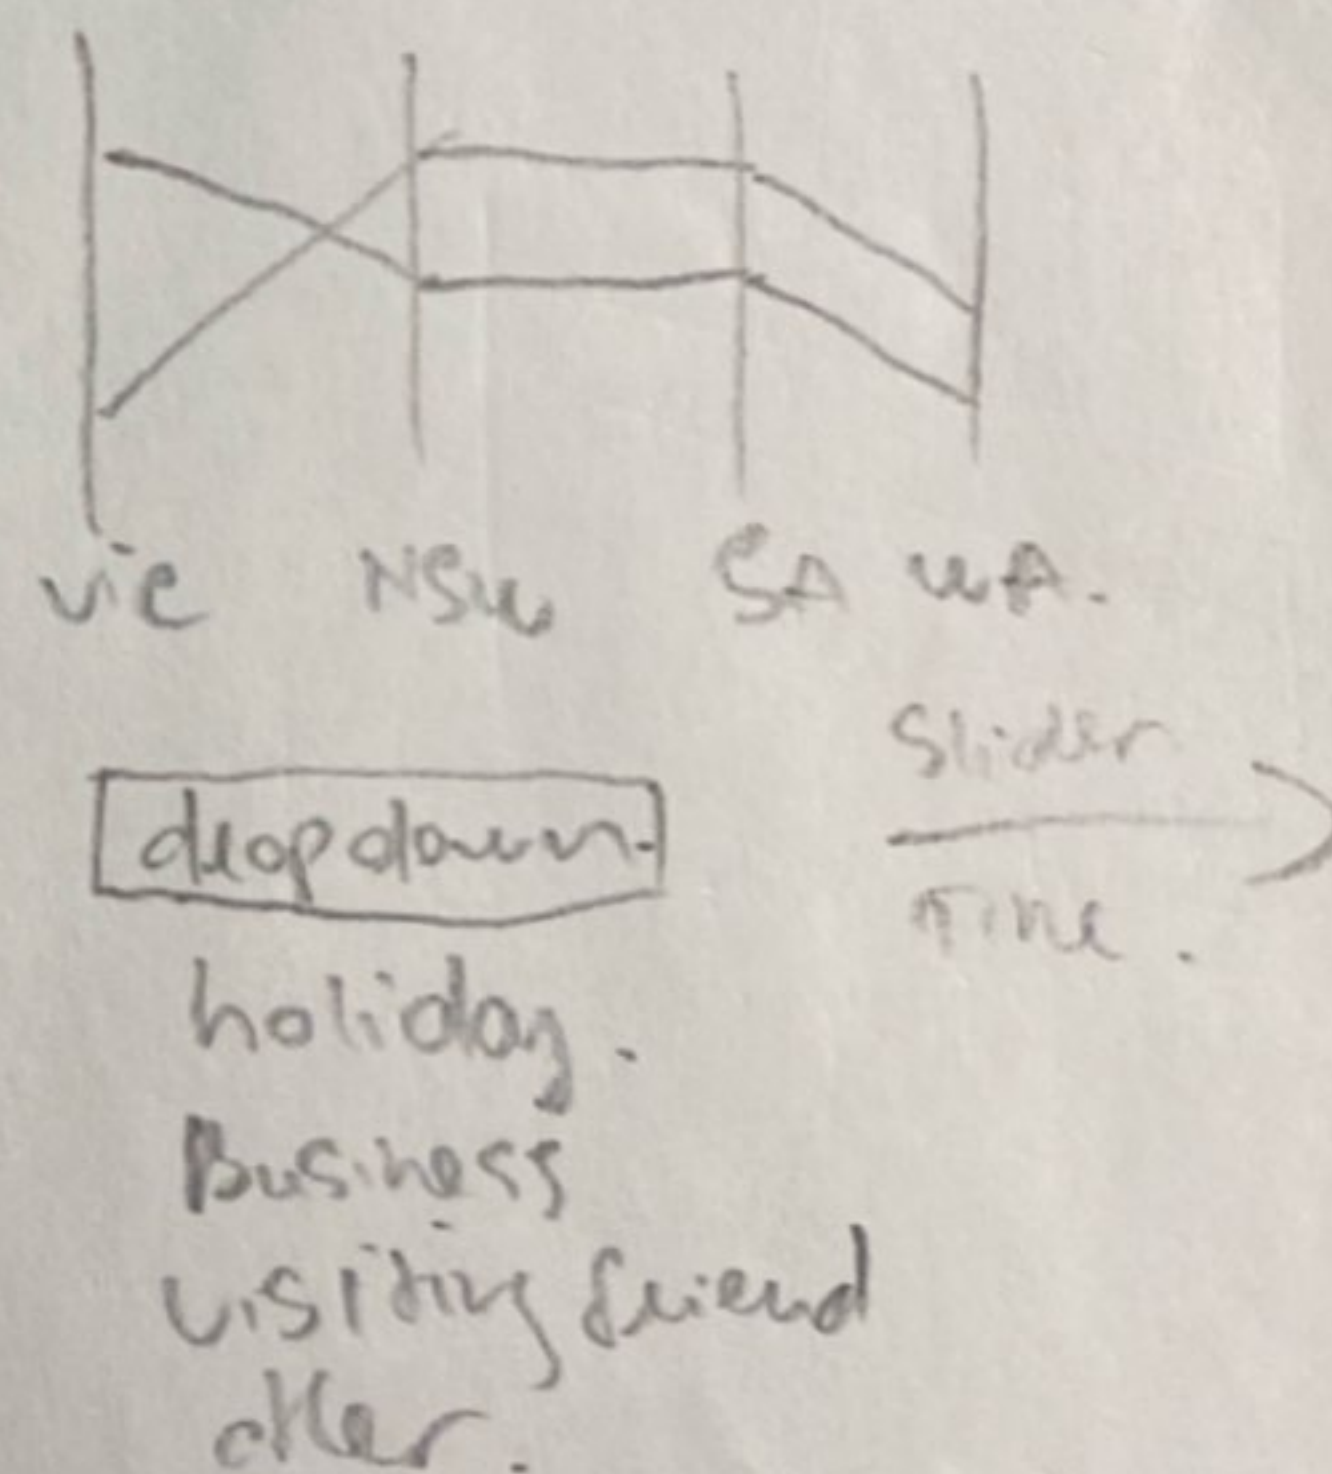 Vic NSW SA WA.
Slider
dropdown.
Time.
holiday.
Business
Visiting friend
other.